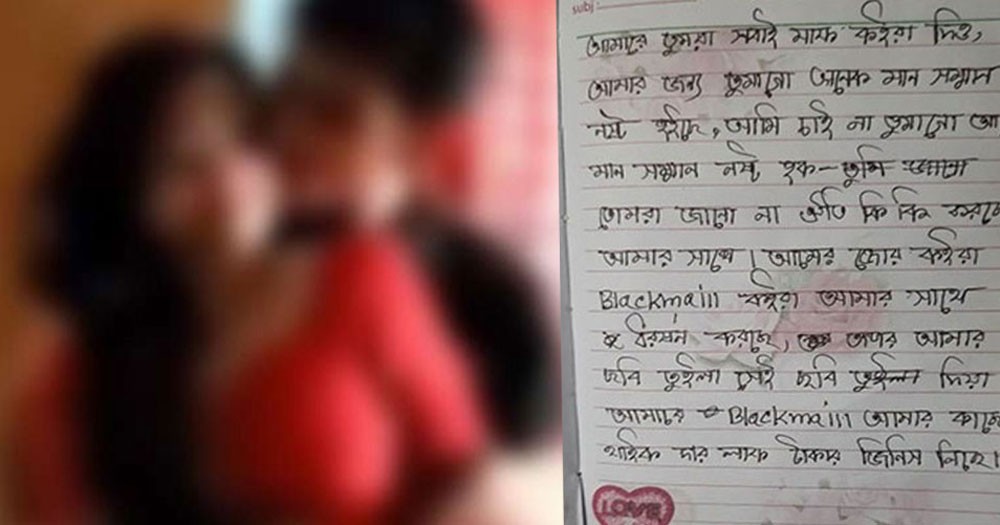 subj:
আমারে তুমরা সবাই মাফ কইরা দিও,
আমার জন্য তুমাগো অনেক মান সম্মান
নষ্ট হইছে, আমি চাই না তুমাগো আ
মান সম্মান নষ্ট হক- তুমি
তোমরা জানো না কি কি করছে
আমার সাথে। আমের জোর কইরা
Blackmaill কইরা আমার সাথে
করছে, তারপর আমার
ছবি তুইলা সেই ছবি তুইলা দিয়া
আমারে Blackmaill আমার কাছে
থাইক লাক টাকার জিনিস নিছে।
LOVE